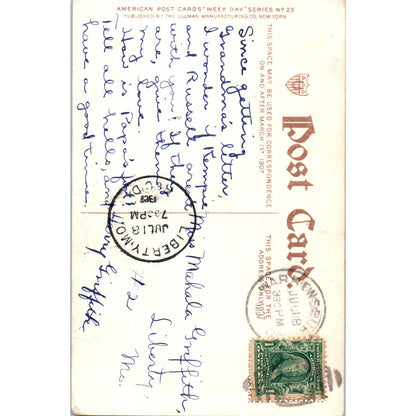 AMERICAN POST CARDS "WEEK DAY" SERIES Nº 23
PUBLISHED BY THE ULLMAN MANUFACTURING CO., NEW YORK.
THIS SPACE MAY BE USED FOR CORRESPONDENCE
ON AND AFTER MARCH 1ST 1907
Post Card.
THIS SPACE IS FOR THE
ADDRESS ONLY
Since getting
Grandma's letter,
I wonder if Kempie
and Russell are
with you? If they
are, give them
my love.
How is Papa's
Tell all hello, and
have a good time.
Mary Griffith
Mrs Mahala Griffith,
Liberty,
Mo.
LIBERTY, MO.
REC'D.
JUL 18
7 30 PM
JUL 18
PM
1907